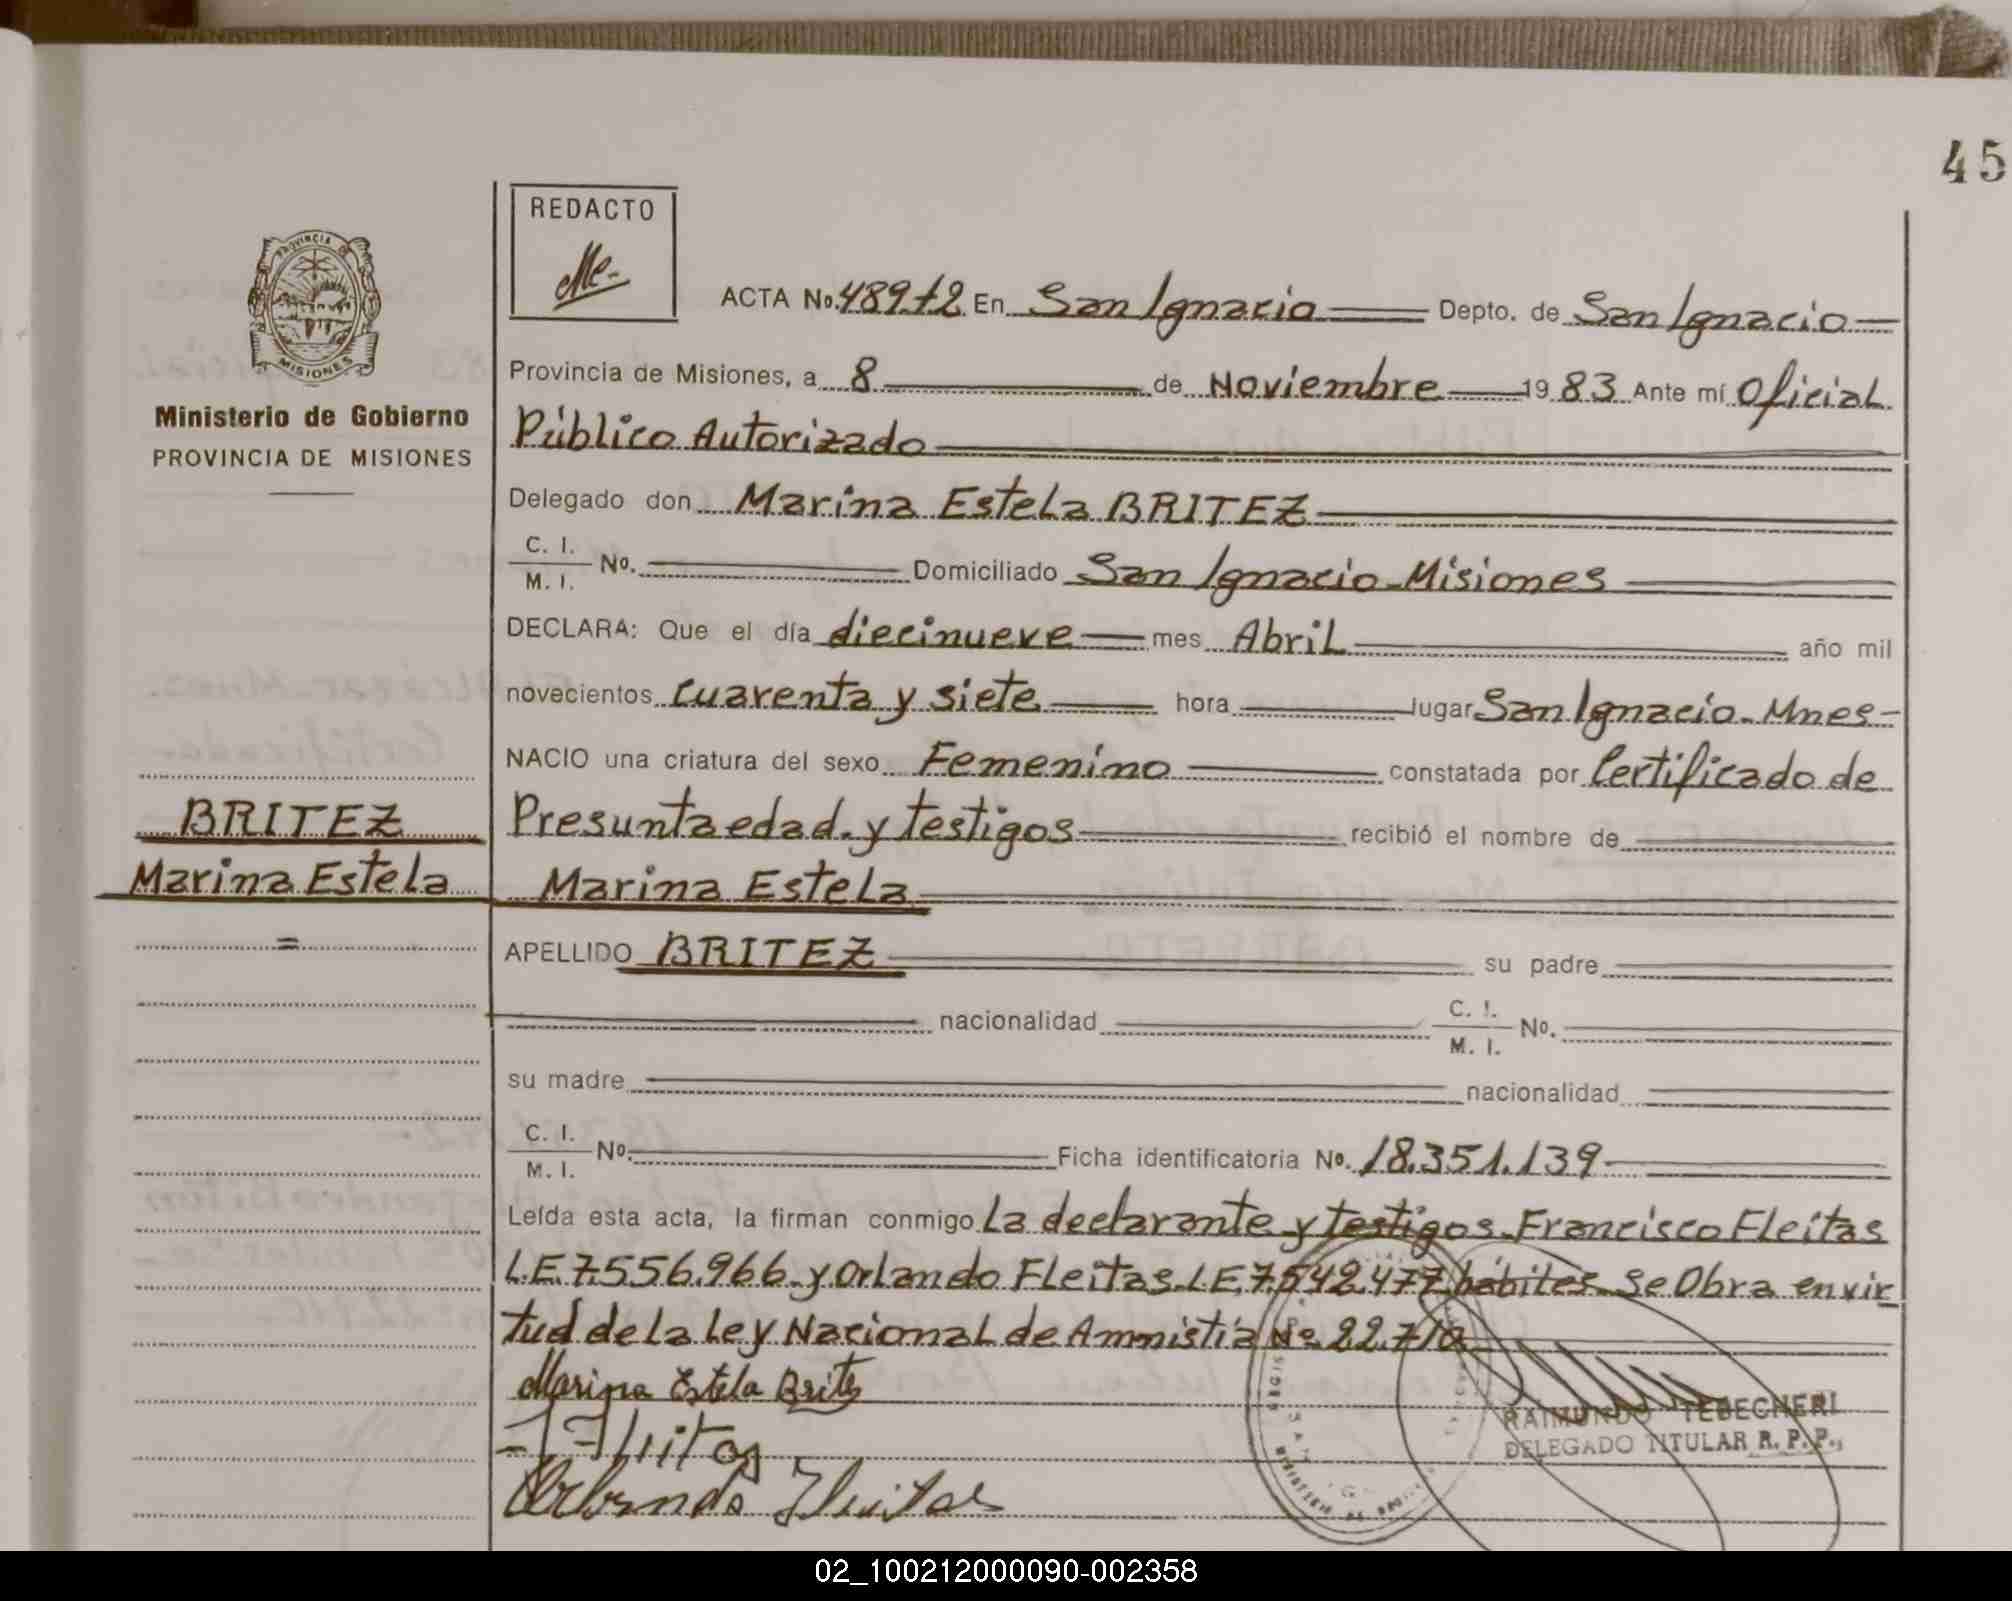 45
REDACTO
PROVINCIA DE
MISIONES
Ministerio de Gobierno
PROVINCIA DE MISIONES
ACTA No. 489.t2 En San Ignacio Depto. de San Ignacio
Provincia de Misiones, a 8 de Noviembre 19 83 Ante mí Oficial
Público Autorizado
Delegado don Marina Estela BRITEZ
C. I.
M. I. No. Domiciliado San Ignacio-Misiones
DECLARA: Que el día diecinueve mes Abril año mil
novecientos cuarenta y siete hora lugar San Ignacio-Mnes-
NACIO una criatura del sexo Femenino constatada por Certificado de
Presunta edad. y testigos recibió el nombre de
Marina Estela
BRITEZ
Marina Estela
=
APELLIDO BRITEZ su padre
nacionalidad C. I.
M. I. No.
su madre nacionalidad
C. I.
M. I. No. Ficha identificatoria No. 18.351.139
Leída esta acta, la firman conmigo La declarante y testigos. Francisco Fleitas
L.E.7.556.966. y Orlando Fleitas. L.E.7.542.477 hábiles. Se Obra en vir
tud de la Ley Nacional de Amnistía Nº 22.710
Marina Estela Britez
Fleitas
Orlando Fleitas
RAIMUNDO TEBECHERI
DELEGADO TITULAR R. P. P.
02_100212000090-002358